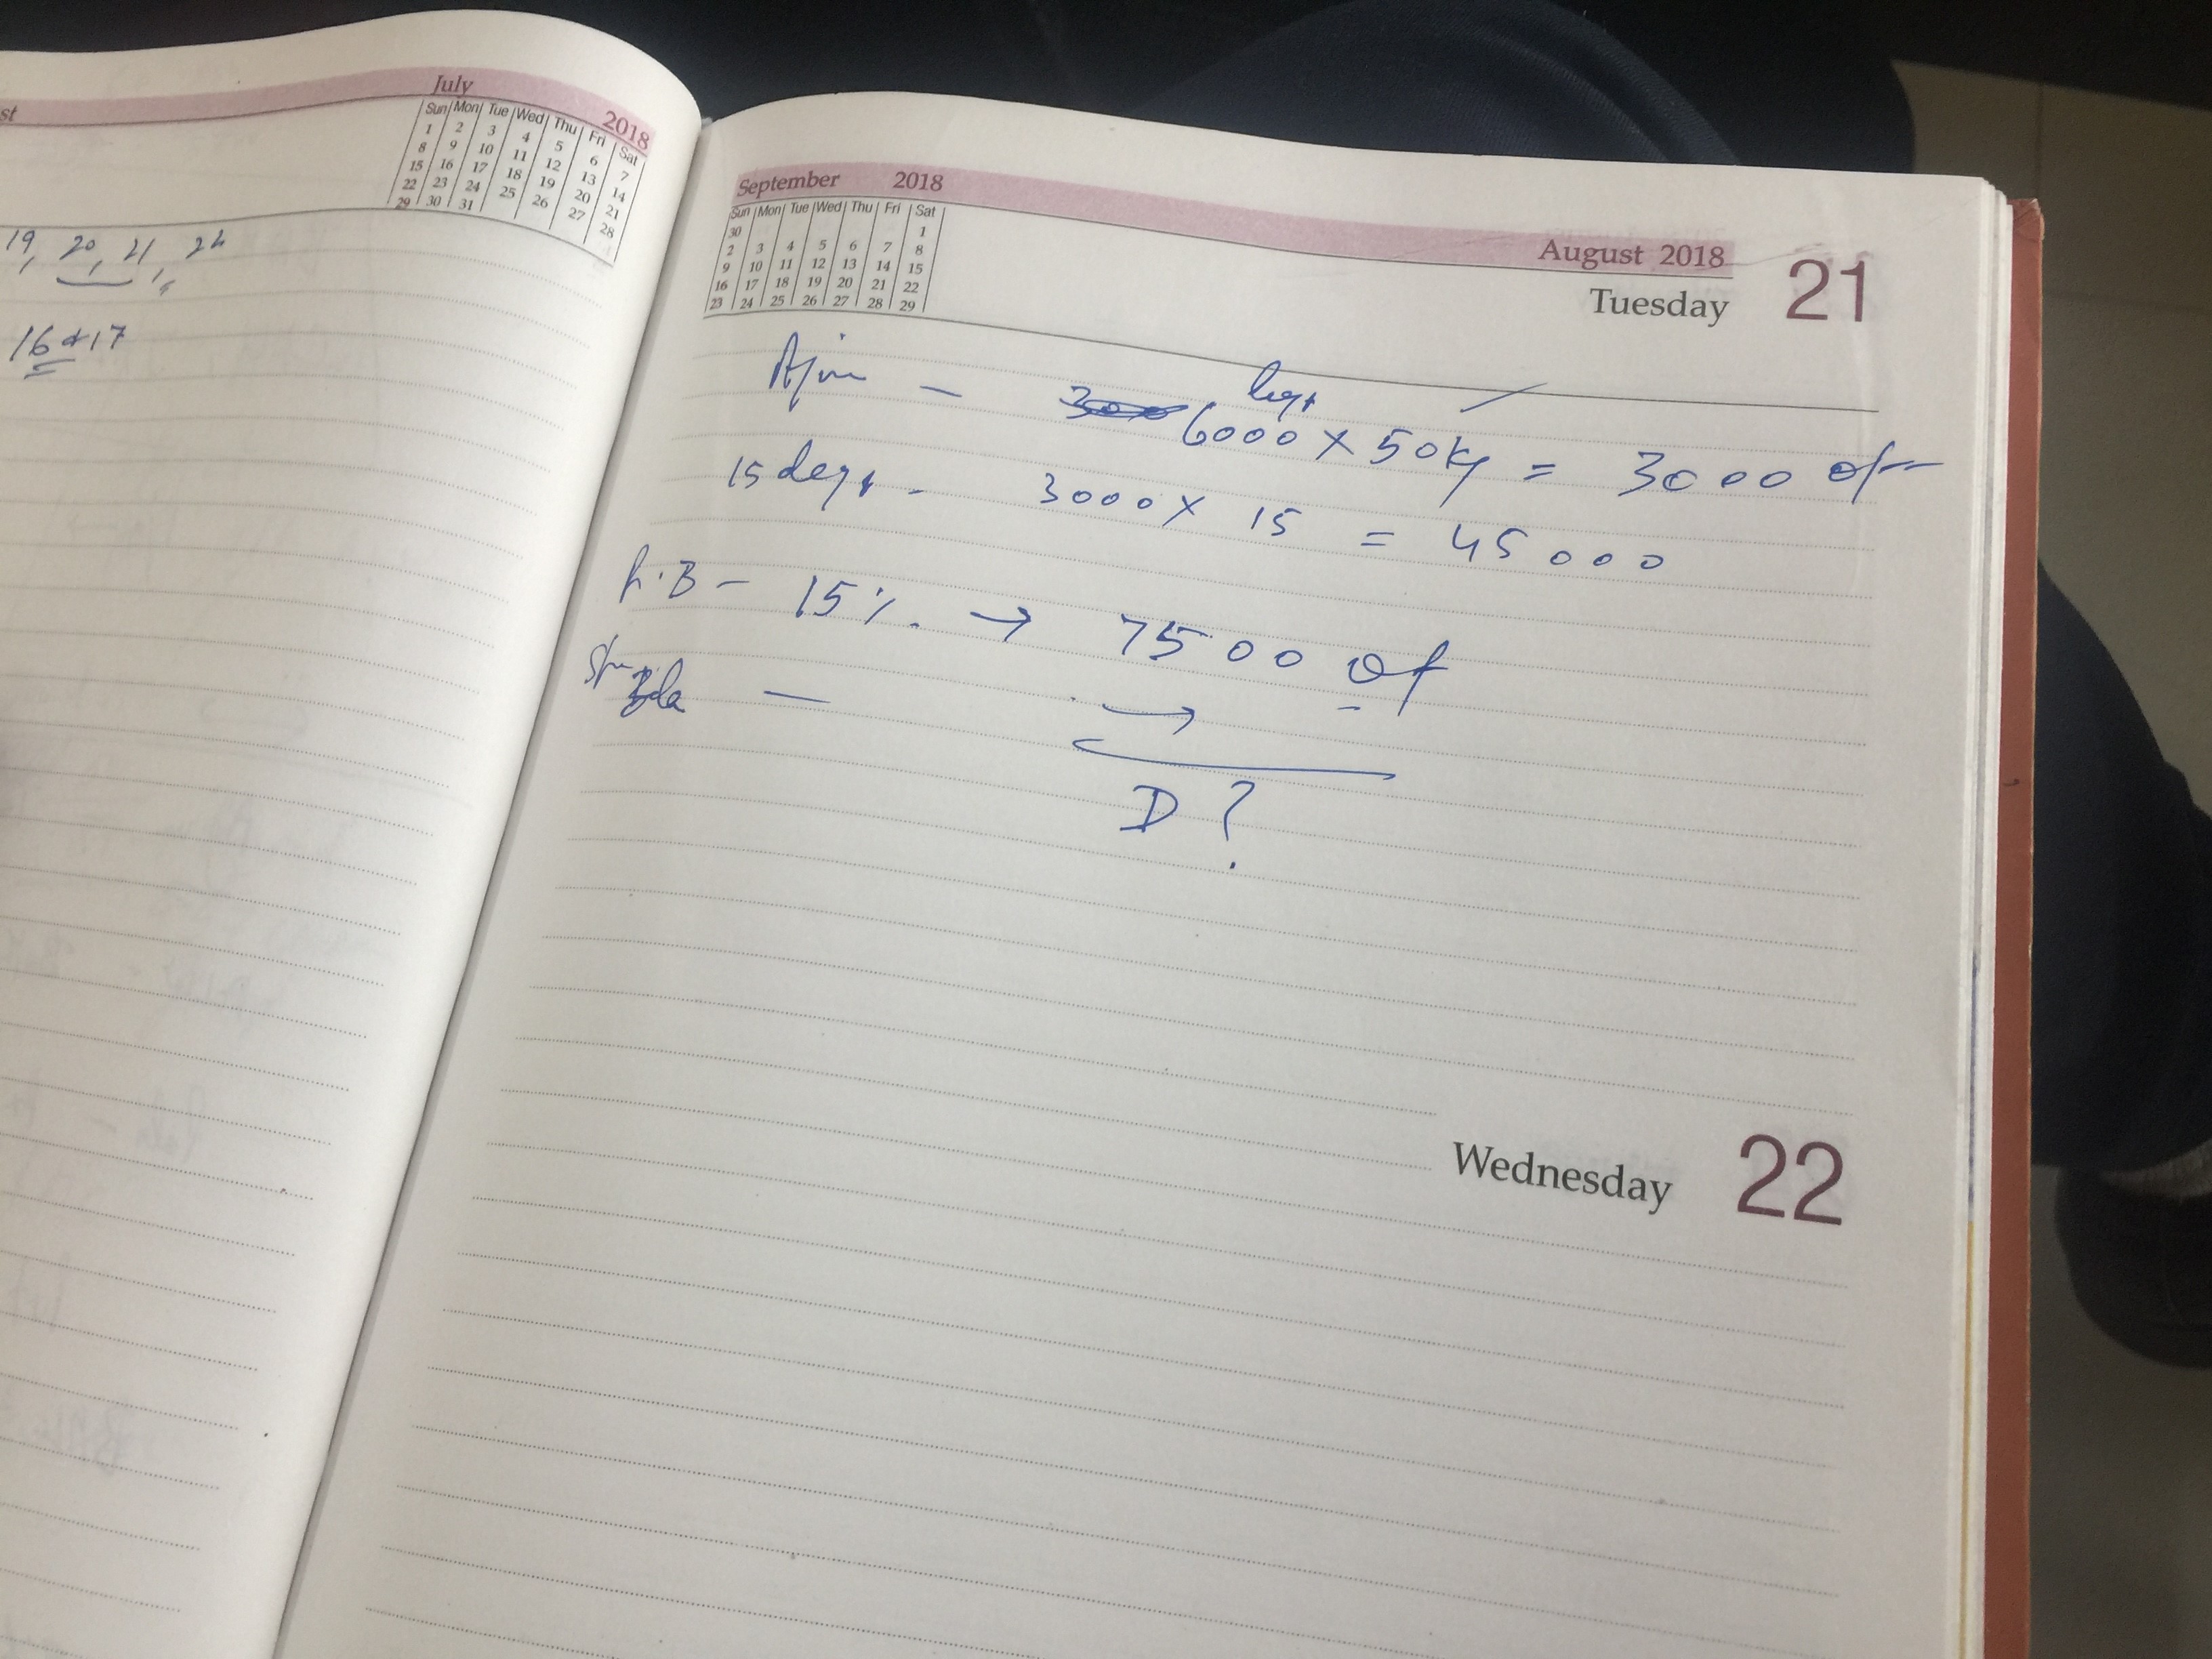 st
July 2018
Sun Mon Tue Wed Thu Fri Sat
1 2 3 4 5 6 7
8 9 10 11 12 13 14
15 16 17 18 19 20 21
22 23 24 25 26 27 28
29 30 31
19, 20, 21, 22
16 & 17
September 2018
Sun Mon Tue Wed Thu Fri Sat
30 1
2 3 4 5 6 7 8
9 10 11 12 13 14 15
16 17 18 19 20 21 22
23 24 25 26 27 28 29
August 2018
Tuesday 21
6000 X 50kg = 3000
15 days - 3000 X 15 = 45000
15% → 7500
— →
D ?
Wednesday 22